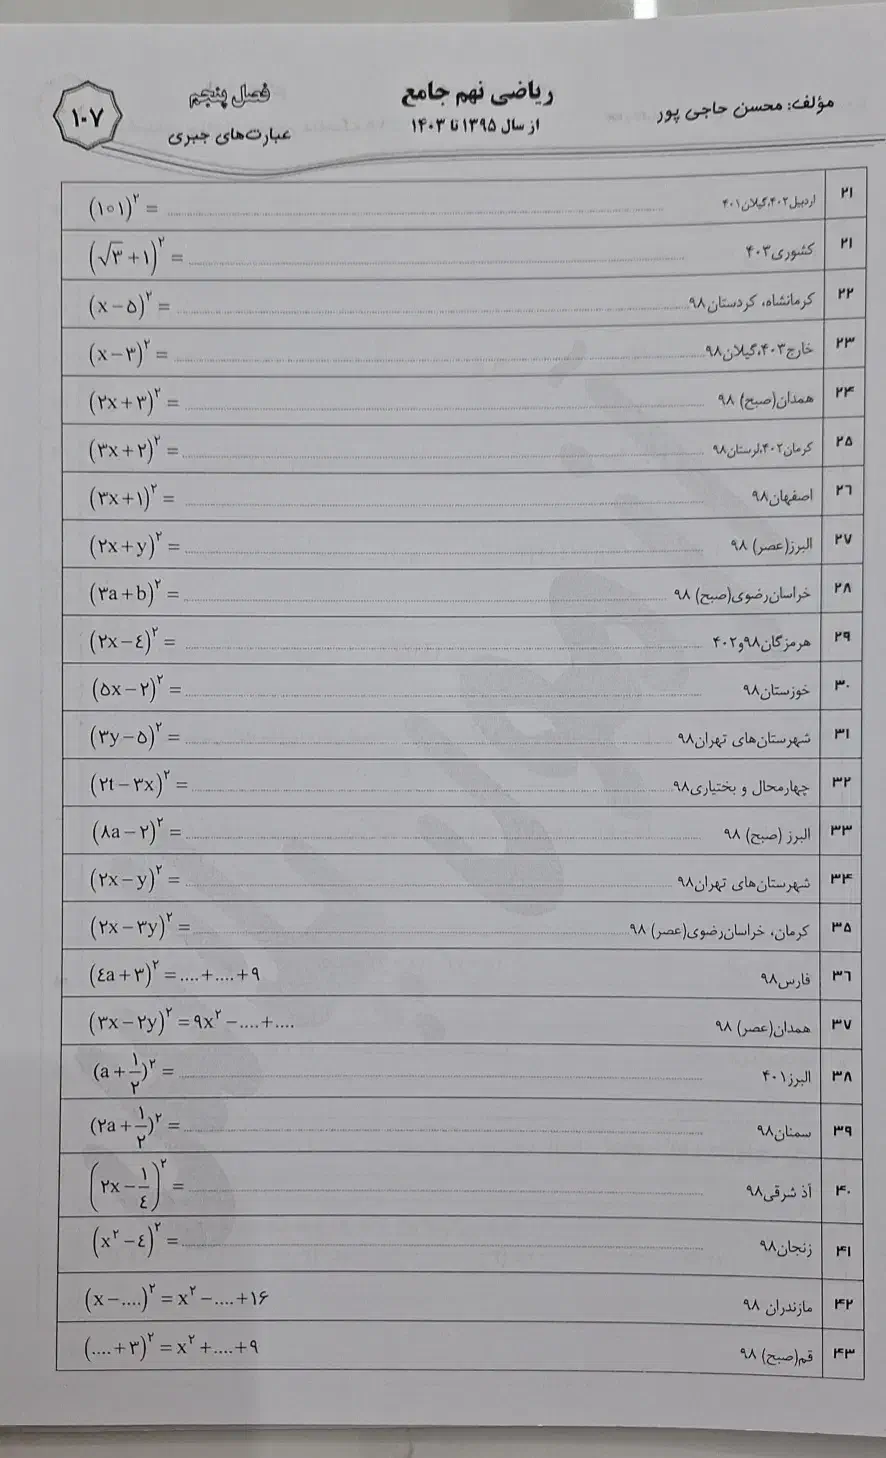 مؤلف: محسن حاجی پور
ریاضی نهم جامع
از سال ۱۳۹۵ تا ۱۴۰۳
فصل پنجم
عبارت‌های جبری
۱۰۷
۲۱ اردبیل۴۰۲،گیلان۴۰۱ (۱۰۱)^۲ = ....
۲۱ کشوری۴۰۳ (√۳ + ۱)^۲ = ....
۲۲ کرمانشاه، کردستان۹۸ (x − ۵)^۲ = ....
۲۳ خارج۴۰۳،گیلان۹۸ (x − ۳)^۲ = ....
۲۴ همدان(صبح) ۹۸ (۲x + ۳)^۲ = ....
۲۵ کرمان۴۰۲،لرستان۹۸ (۳x + ۲)^۲ = ....
۲۶ اصفهان۹۸ (۳x + ۱)^۲ = ....
۲۷ البرز(عصر) ۹۸ (۲x + y)^۲ = ....
۲۸ خراسان‌رضوی(صبح) ۹۸ (۳a + b)^۲ = ....
۲۹ هرمزگان۹۸و۴۰۲ (۲x − ٤)^۲ = ....
۳۰ خوزستان۹۸ (۵x − ۲)^۲ = ....
۳۱ شهرستان‌های تهران۹۸ (۳y − ۵)^۲ = ....
۳۲ چهارمحال و بختیاری۹۸ (۲t − ۳x)^۲ = ....
۳۳ البرز (صبح) ۹۸ (۸a − ۲)^۲ = ....
۳۴ شهرستان‌های تهران۹۸ (۲x − y)^۲ = ....
۳۵ کرمان، خراسان‌رضوی(عصر) ۹۸ (۲x − ۳y)^۲ = ....
۳۶ فارس۹۸ (٤a + ۳)^۲ = .... + .... + ۹
۳۷ همدان(عصر) ۹۸ (۳x − ۲y)^۲ = ۹x^۲ − .... + ....
۳۸ البرز۴۰۱ (a + ۱/۲)^۲ = ....
۳۹ سمنان۹۸ (۲a + ۱/۲)^۲ = ....
۴۰ آذ شرقی۹۸ (۲x − ۱/٤)^۲ = ....
۴۱ زنجان۹۸ (x^۲ − ٤)^۲ = ....
۴۲ مازندران ۹۸ (x − ....)^۲ = x^۲ − .... + ۱۶
۴۳ قم(صبح) ۹۸ (.... + ۳)^۲ = x^۲ + .... + ۹